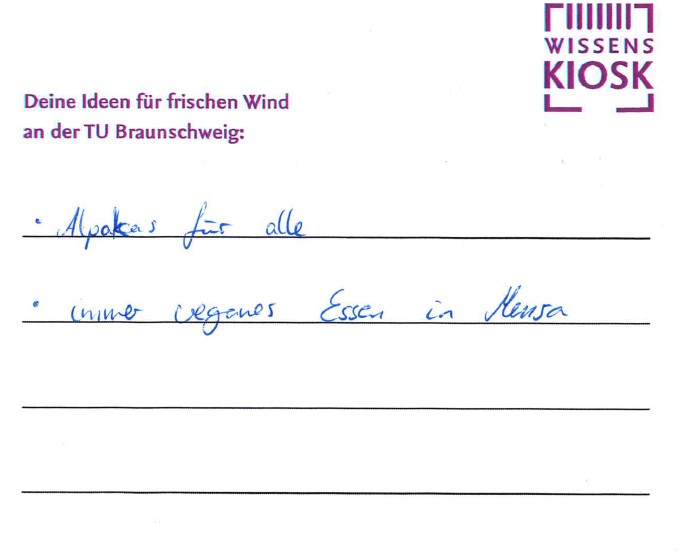 WISSENS
KIOSK
Deine Ideen für frischen Wind
an der TU Braunschweig:
• Alpakas für alle
• immer veganes Essen in Mensa